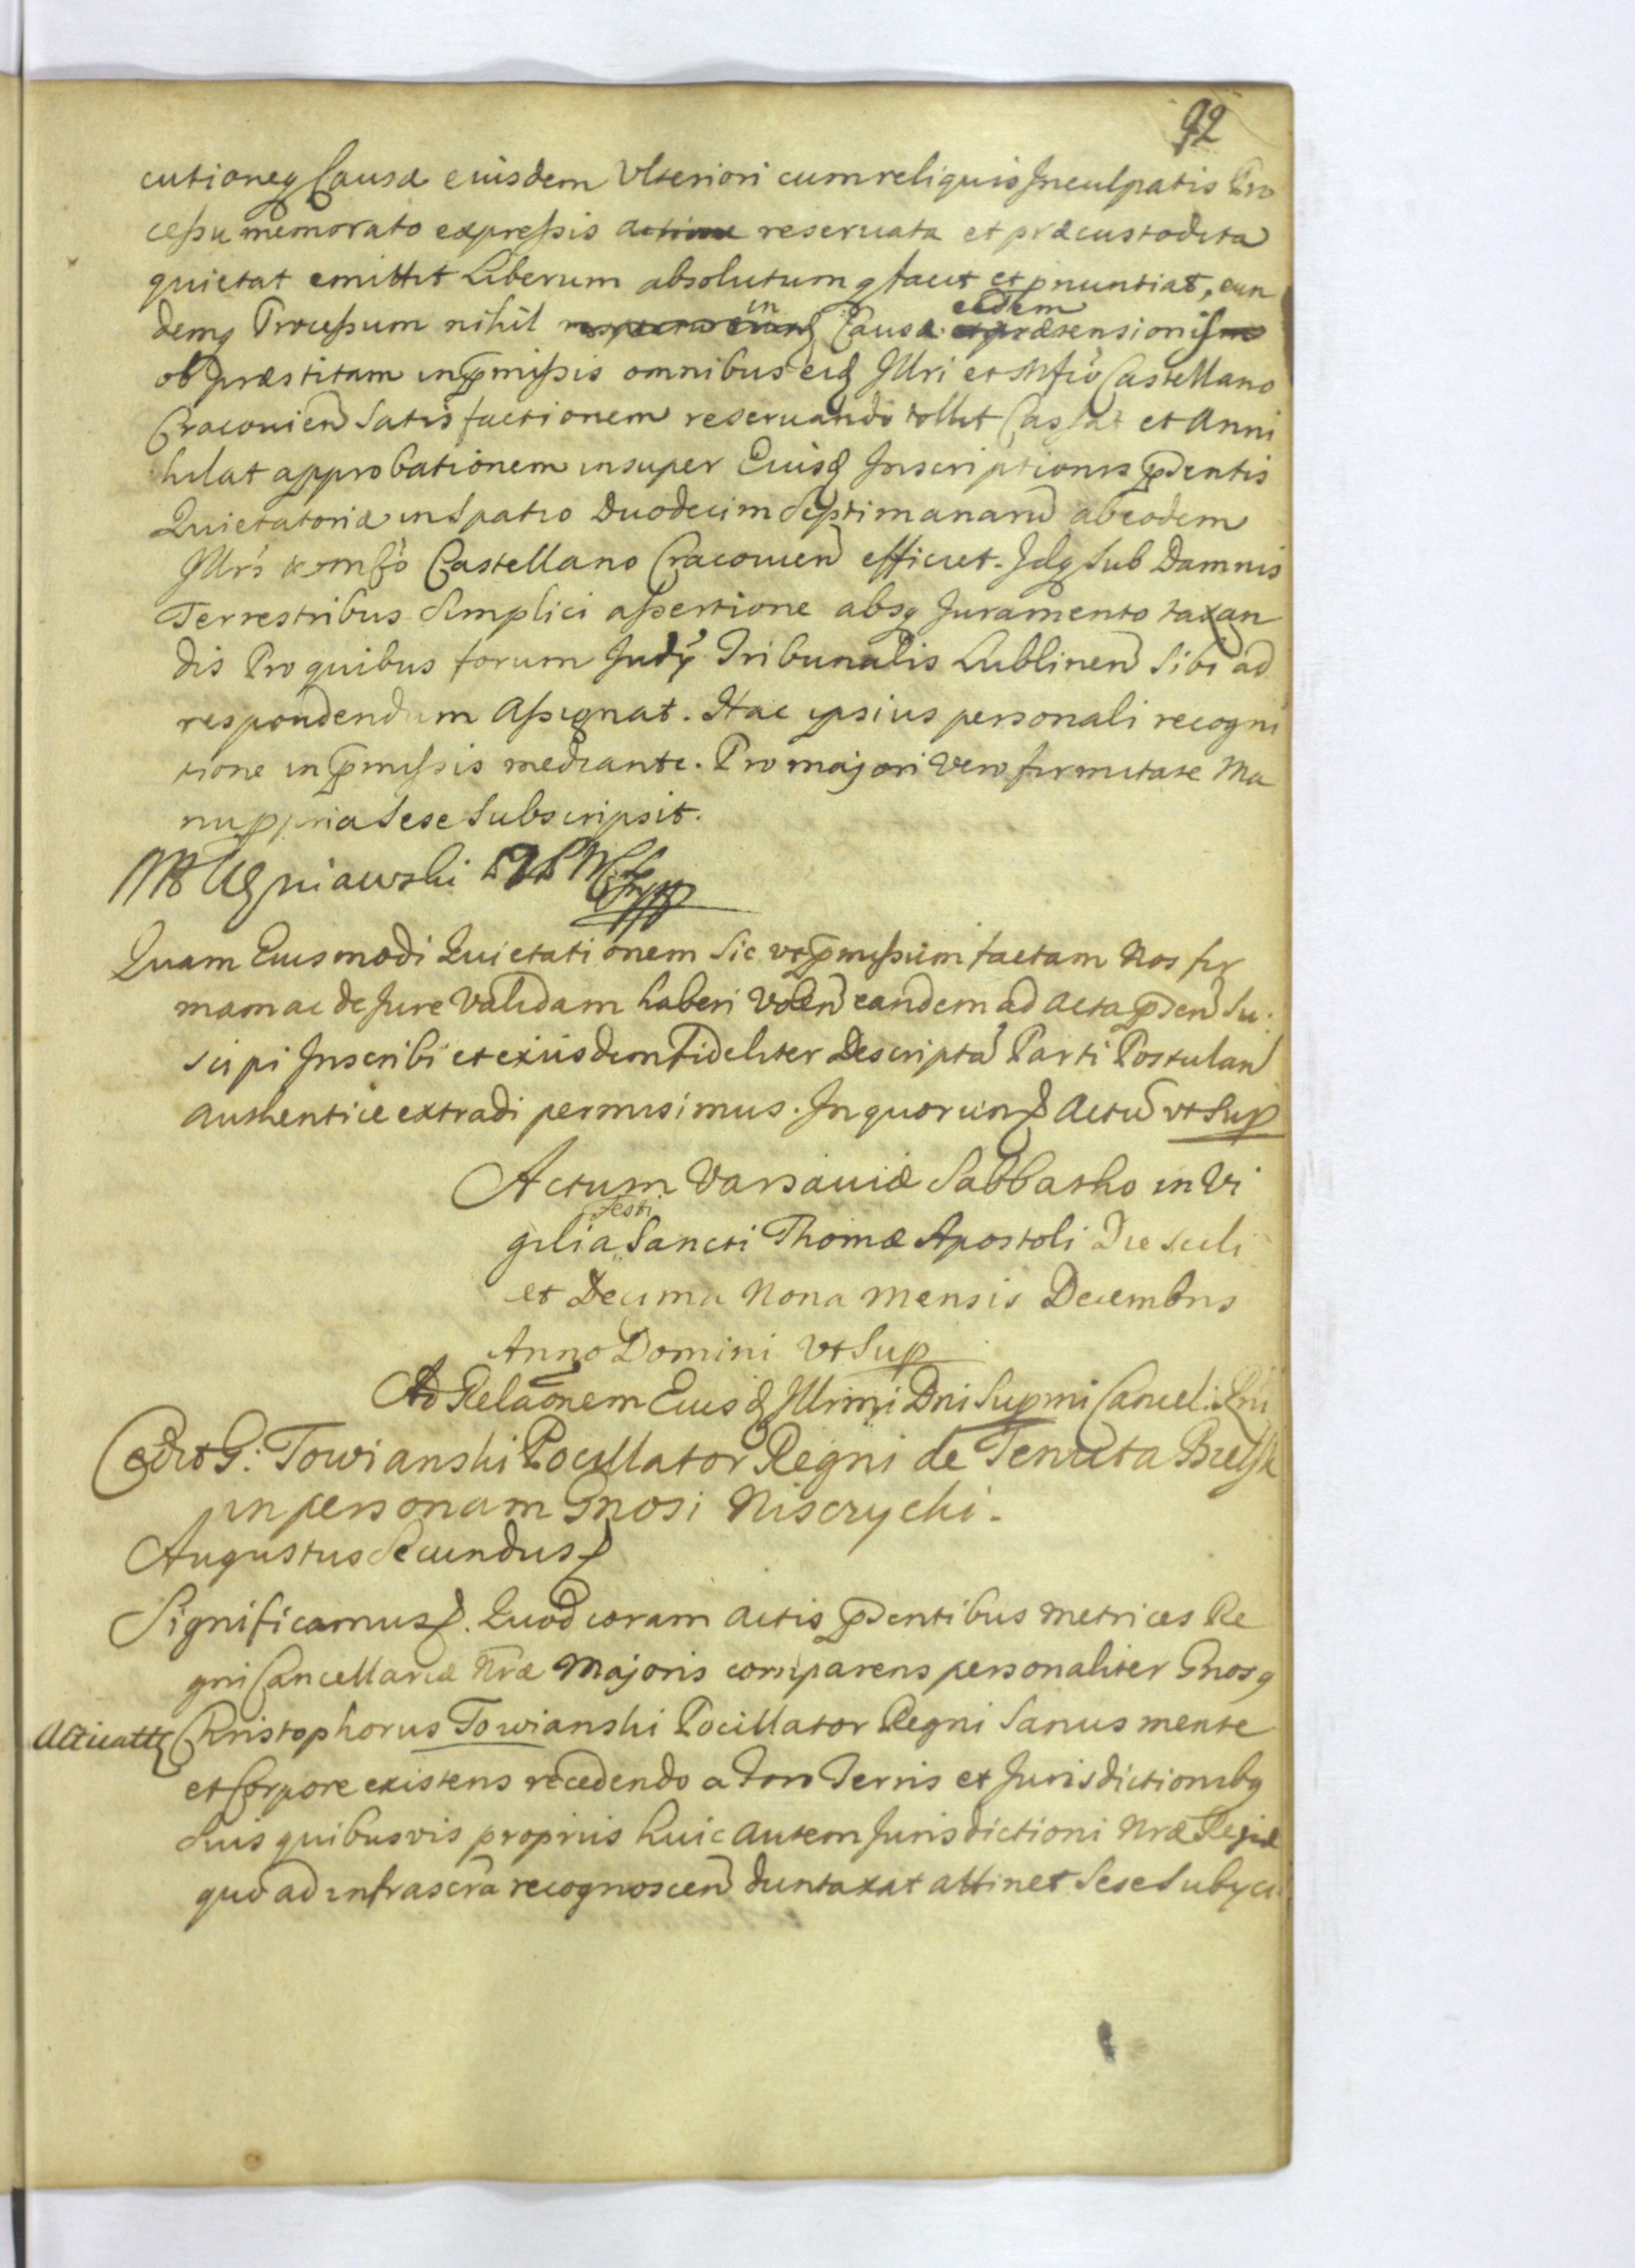 92
cutioneq Causæ eiusdem Vlteriori cum reliquis Inculpatis Pro
cessu memorato expressis actione reseruata et præcustodita
quietat emittit Liberum absolutumq facit et pnuntiat, eun
demq Processum nihil in Causa eadem prætensionis
ob præstitam in pmissis omnibus eid Illri et Mfco Castellano
Cracouien Satisfactionem reseruando tollit Cassat et Anni
hilat approbationem insuper Eiusd Inscriptionis pdentis
Quietatoriæ in Spatio Duodecim Septimanaru ab eodem
Illri et Mfco Castellano Cracouien efficiet. Idq Sub Damnis
Terrestribus Simplici assertione absq Juramento taxan
dis Pro quibus forum Judy Tribunalis Lublinen Sibi ad
respondendum Assignat. Hac ipsius personali recogni
tione in pmissis mediante. Pro majori Vero firmitate Ma
nu ppria Sese Subscripsit.
Quam Eiusmodi Quietationem Sic vt pmissum factam Nos fir
mam ac de Jure Validam haberi Volen eandem ad Acta pden Su
scipi Inscribi et eiusdem Fideliter Descripta Parti Postulan
authentice extradi permisimus. In quorum Actu vt Sup
Actum Varsauiæ Sabbatho in Vi
gilia festi Sancti Thomæ Apostoli Die
et Decima Nona Mensis Decembris
Anno Domini Vt Sup
Ad Relaonem Eiusd Illrmi Dni Supmi Cancel: Rni
G: Towianski Pocillator Regni de Tenuta
in personam Gnosi Nisczychi.
Augustus Secundus
Significamus. Quod coram Actis pdentibus Metrices Re
gni Cancellariæ Nræ Majoris comparens personaliter Gnosq
Christophorus Towianski Pocillator Regni Sanus mente
et Corpore existens recedendo a foro Terris et Jurisdictionibq
Suis quibusvis propriis huic autem Jurisdictioni Nræ Regiæ
quo ad infrascra recognoscen duntaxat attinet Sese Subyci